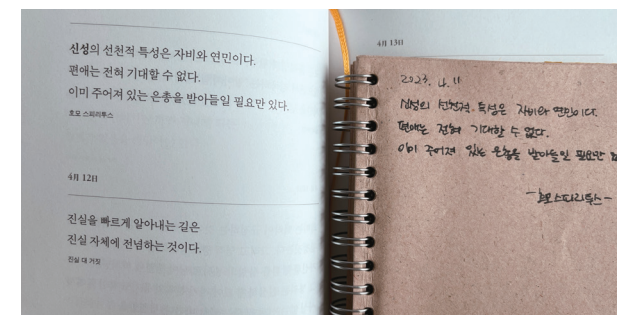 신성의 선천적 특성은 자비와 연민이다.
편애는 전혀 기대할 수 없다.
이미 주어져 있는 은총을 받아들일 필요만 있다.
호모 스피리투스
4月 12日
진실을 빠르게 알아내는 길은
진실 자체에 전념하는 것이다.
진실 대 거짓
4月 13日
2023. 4. 11
신성의 선천적 특성은 자비와 연민이다.
편애는 전혀 기대할 수 없다.
이미 주어져 있는 은총을 받아들일 필요만
-호모스피리투스-